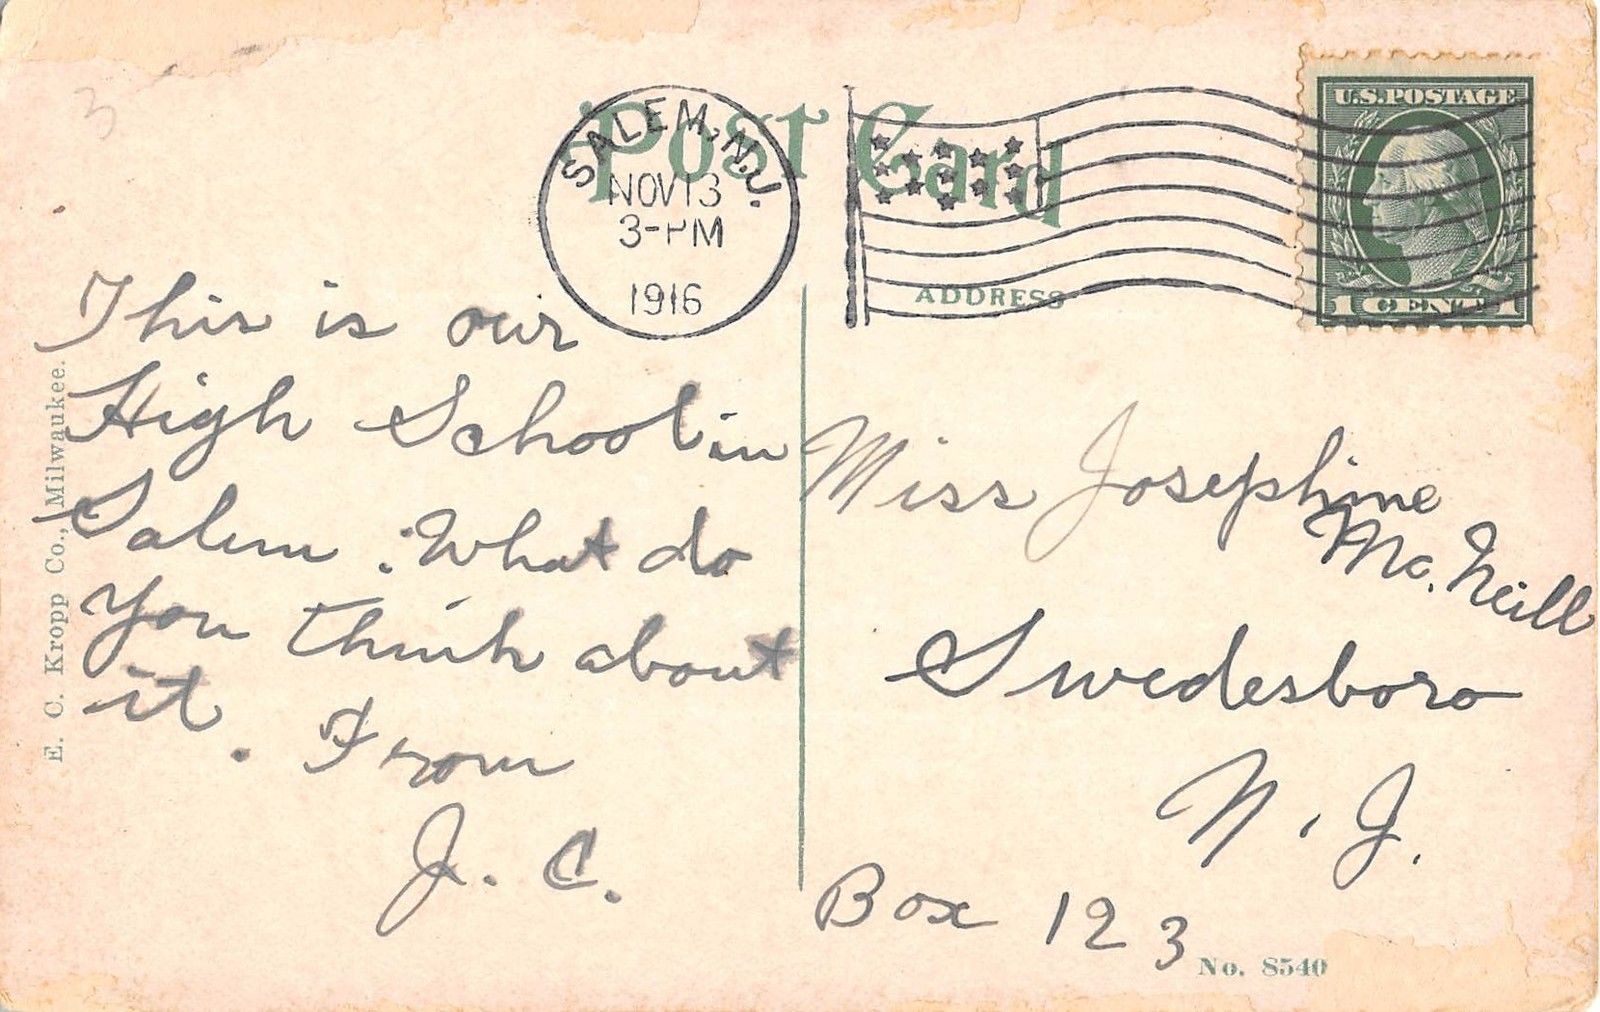 Post Card
SALEM, N.J.
NOV 13
3-PM
1916
U.S. POSTAGE
1 CENT 1
ADDRESS
This is our
High School in
Salem. What do
you think about
it. From
J. C.
Miss Josephine
Mc. Neill
Swedesboro
N. J.
Box 123
No. 8540
E. C. Kropp Co., Milwaukee.
3